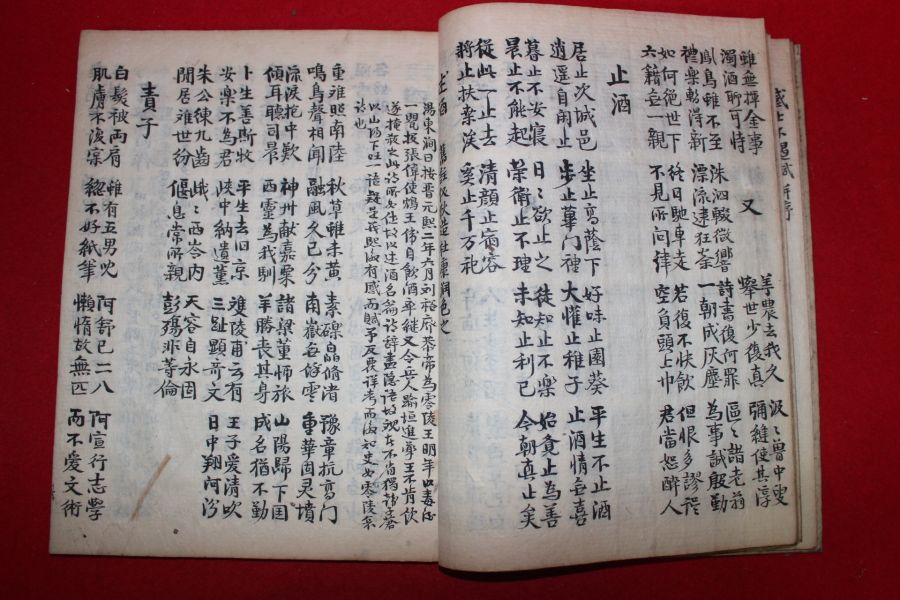 感士不遇賦并序
雖無揮金事 又 羲農去我久 汲〻魯中叟
濁酒聊可恃 擧世少復真 彌縫使其淳
鳳鳥雖不至 洙泗輟微響 詩書復何罪 區〻諸老翁
禮樂暫得新 漂流逮狂秦 一朝成灰塵 為事誠殷勤
如何絶世下 終日馳車走 若復不快飲 但恨多謬誤
六籍無一親 不見所問津 空負頭上巾 君當恕醉人
止酒
居止次城邑 坐止高蔭下 好味止園葵 平生不止酒
逍遥自閑止 步止蓽門裡 大懽止稚子 止酒情無喜
暮止不安寢 日〻欲止之 徒知止不樂 始覺止為善
晨止不能起 榮衛止不理 未知止利己 今朝真止矣
從此一止去 清顔止宿容
將止扶桒涘 奚止千万祀
述酒 儀狄造杜康潤色之
湯東澗曰按晋元熙二年六月刘裕廢恭帝為零陵王明年以毒酒
一甖授張偉使鴆王偉自飲酒卒継又令兵人踰垣進藥王不肯飲
遂掩殺之此詩所為作故以述酒名篇詩辞盡隐語故觀者不省獨韓子蒼
以山陽下国一語疑是義熙後有感而賦予反覆詳考而後知决為零陵哀
詩也
重離照南陸 秋草雖未黃 素礫皛脩渚 豫章抗高門
鳴鳥聲相聞 融風久已分 南嶽無餘雲 重華固灵墳
流淚抱中歎 神州献嘉粟 諸梁董師旅 山陽歸下国
傾耳聽司晨 西靈為我馴 羊勝喪其身 成名猶不勤
卜生善斯牧 平生去旧京 双陵甫云有 王子愛清吹
安樂不為君 峽中納遺薰 三趾顕奇文 日中翔河汾
朱公練九齒 峨〻西岺内 天容自永固
閒居離世紛 偃息常所親 彭殤非等倫
責子
白髮被兩肩 雖有五男兒 阿舒已二八 阿宣行志學
肌膚不復實 緫不好紙筆 懶惰故無匹 而不愛文術